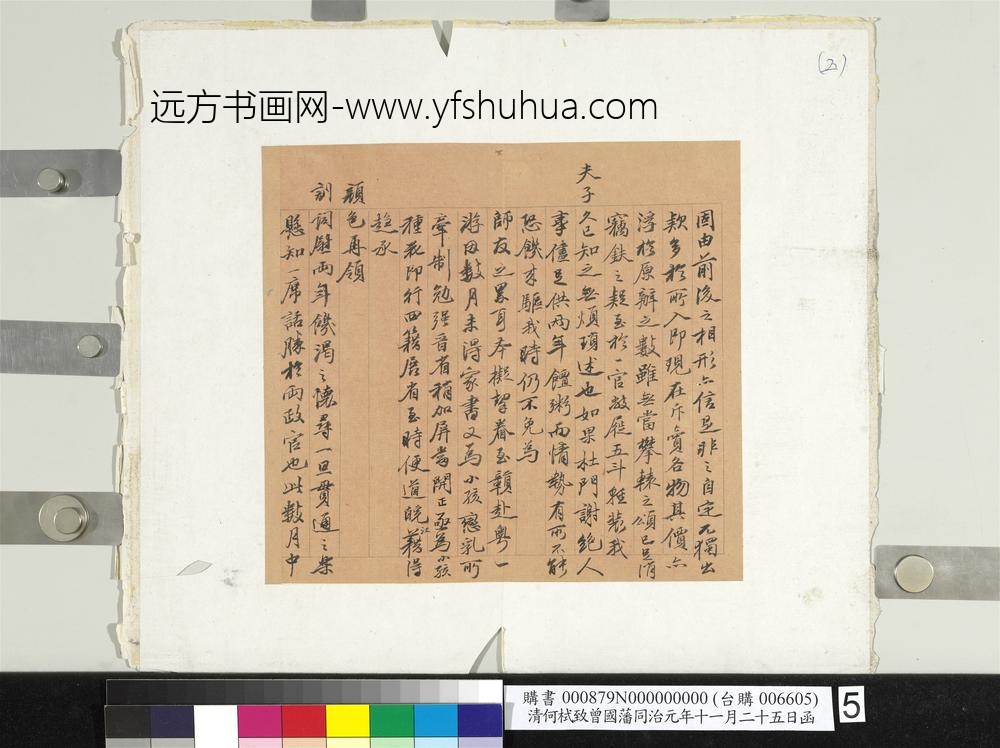 (五)
远方书画网-www.yfshuhua.com
固由前後之相形亦信是非之自定尤獨出
款多於所入即現在斥賣各物其價亦
浮於原辦之數雖無當攀轅之頌已足消
竊鈇之疑至於一官敝屣五斗雞裝我
夫子久已知之無煩瑣述也如果杜門謝絕人
事僅足供兩年饘粥而情勢有所不能
恐餓來驅我時仍不免為
師友之累耳本擬挈眷至贛赴粵一
游因數月未得家書又為小孩戀乳所
牽制勉强晉省稍加屏當開正亟為小孩
種衣即行回籍居省至時便道皖江藉得
趨承
顏色再領
訓詞慰兩年饑渴之懷尋一旦貫通之樂
懸知一席話勝於兩政官也此數月中
購書 000879N000000000 (台購 006605)
清何栻致曾國藩同治元年十一月二十五日函
5